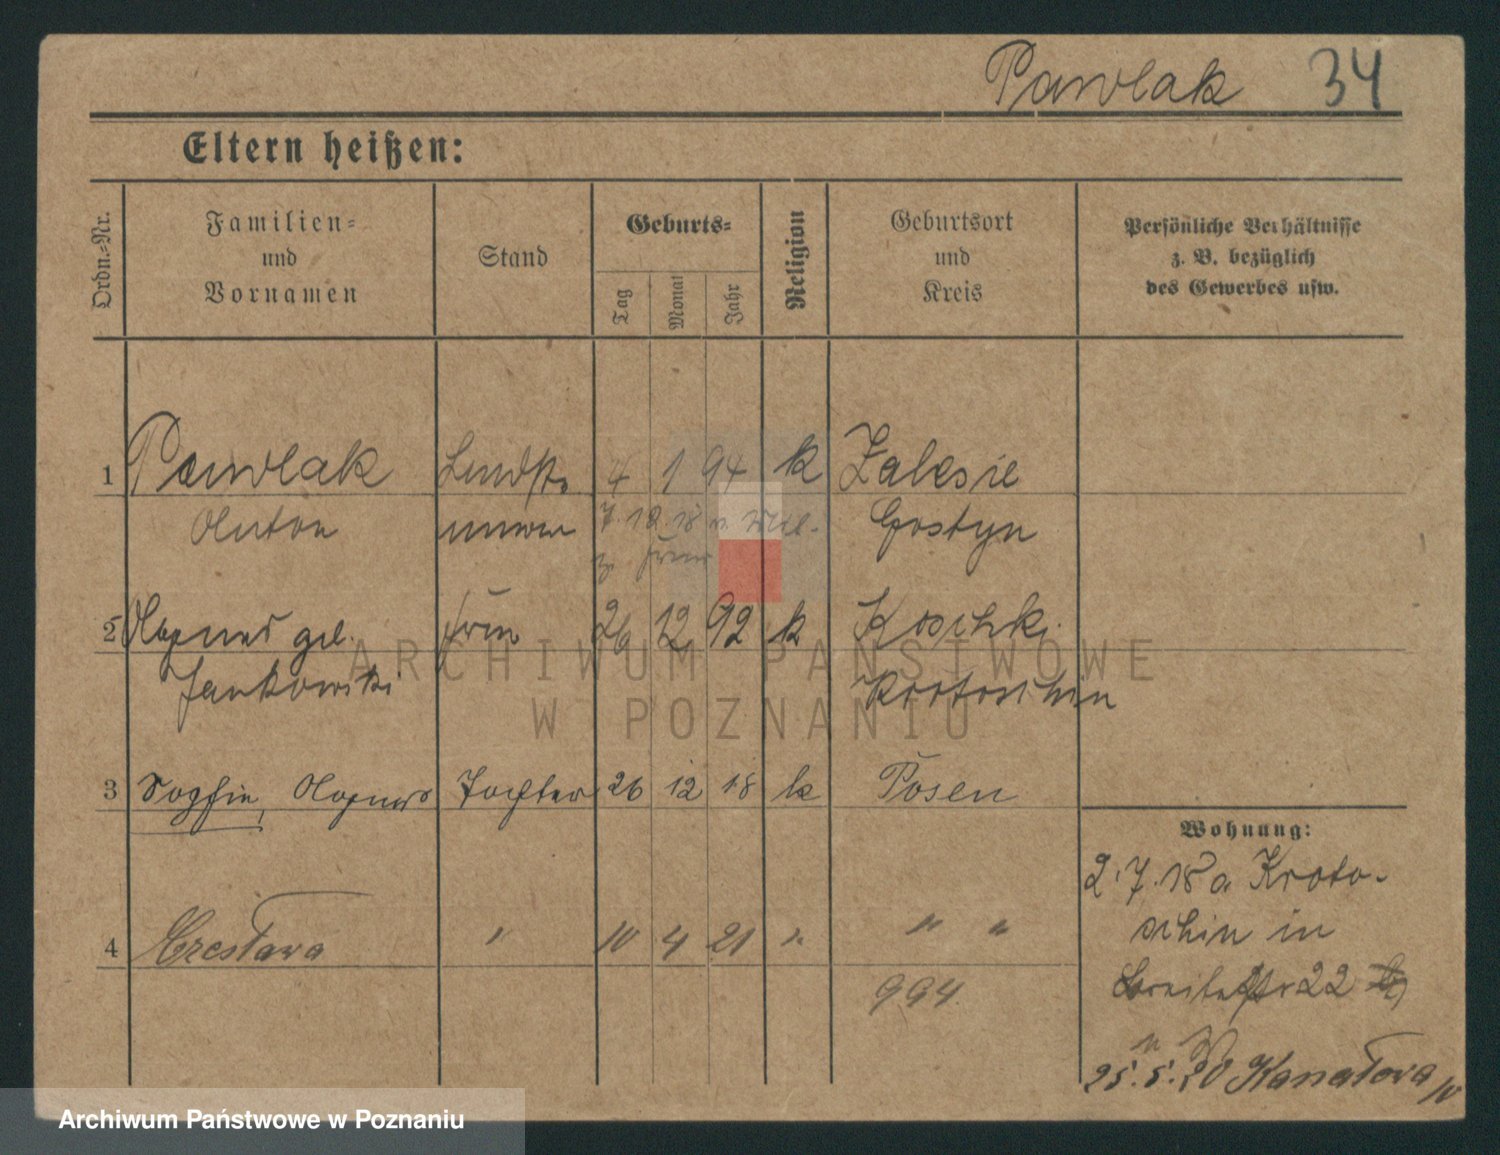 Pawlak 34
Eltern heißen:
Ordn.-Nr.
Familien-
und
Vornamen
Stand
Geburts-
Tag
Monat
Jahr
Religion
Geburtsort
und
Kreis
Persönliche Verhältnisse
z. B. bezüglich
des Gewerbes usw.
1 Pawlak 4 1 94 k Zalesie
Anton 7.12.18 v. Gostyn
2 Agnes geb. Frau 26 12 92 k Koschki
Jankowski Krotoschin
3 Sophie, Agnes Tochter 26 12 18 k Posen
Wohnung:
2.7.18 a Kroto-
schin in
4 Czesława " 10 4 21 " " "
Breitestr 22
994
25.5.20 Kanałowa
ARCHIWUM PAŃSTWOWE
W POZNANIU
Archiwum Państwowe w Poznaniu